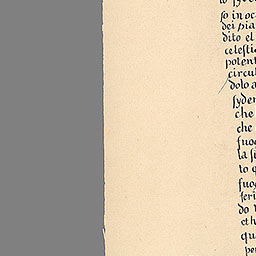 so in oc
dei pia
dito el
celesti
potent
circul
dolo a
syder
che
che
suo
la si
to q
suo
seri
do
et h
qu
per